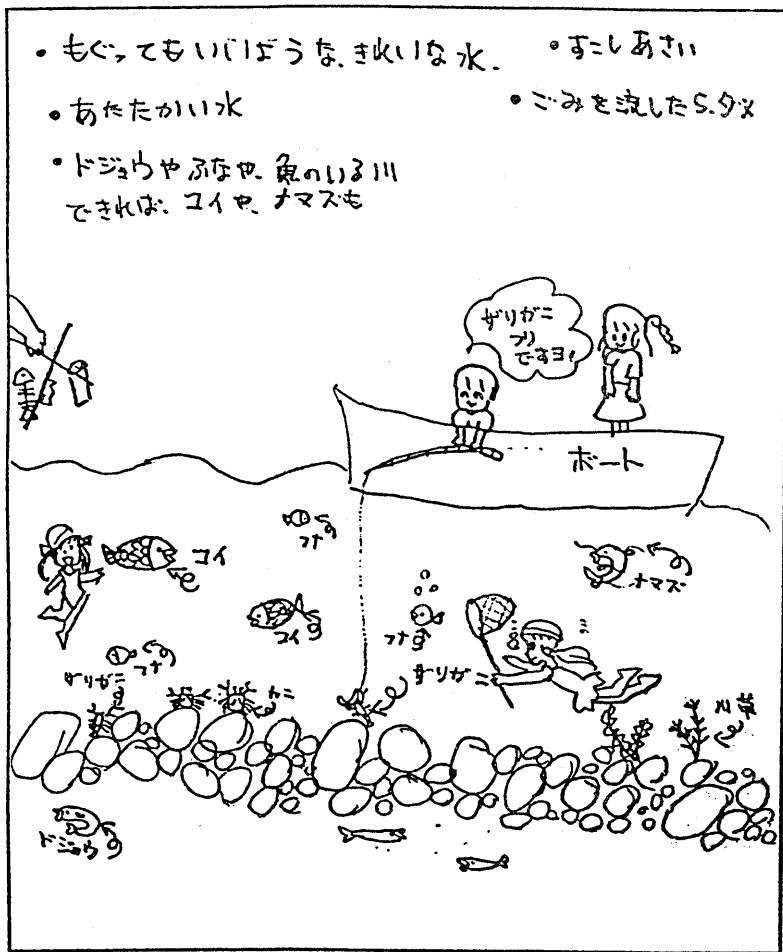 ・もぐってもいじょうな、きれいな水、
・すこしあさい
・あたたかい水
・ごみを流したら、ダメ
・ドジョウやふなや、魚のいる川
できれば、コイや、ナマズも
ザリガニ
ツリ
ですヨ!
ボート
コイ
フナ
ナマズ
コイ
フナ
フナ
ザリガニ
カニ
ザリガニ
川草
ドジョウ